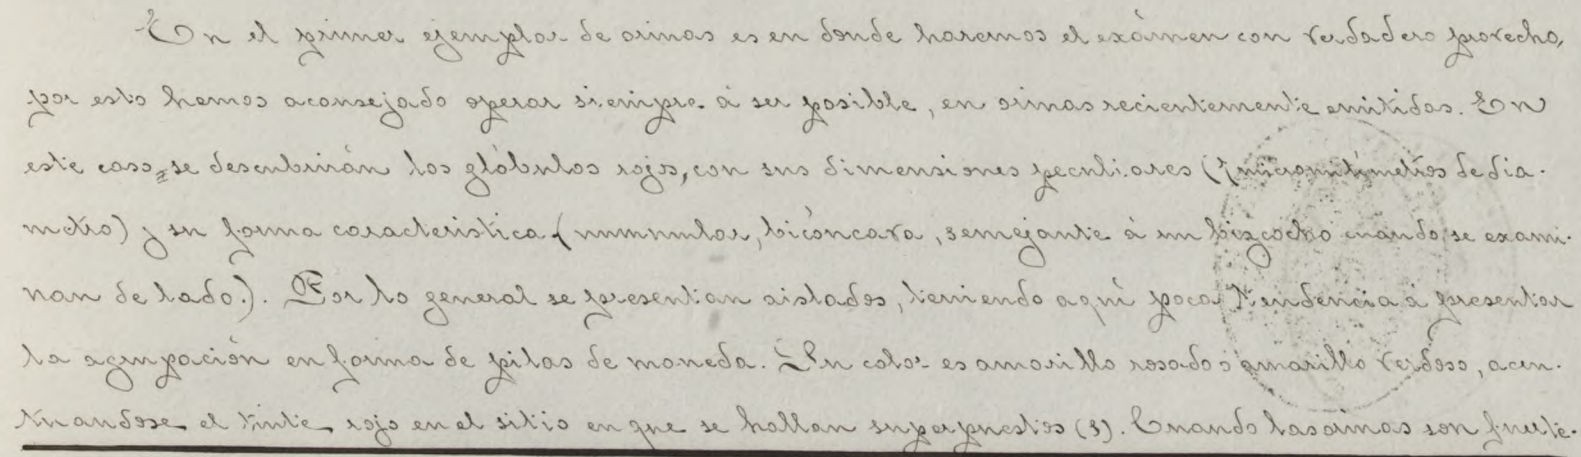 En el primer ejemplar de orinas es en donde haremos el exámen con verdadero provecho,
por esto hemos aconsejado operar siempre á ser posible, en orinas recientemente emitidas. En
este caso, se descubrirán los glóbulos rojos, con sus dimensiones peculiares (7 micromilímetros de diá-
metro) y su forma caracteristica (nummular, bicóncava, semejante á un bizcocho cuando se exami-
nan de lado.). Por lo general se presentan aislados, teniendo aquí poca tendencia á presentar
la agrupación en forma de pilas de moneda. Su color es amarillo rosado ó amarillo verdoso, acen-
tuandose el tinte rojo en el sitio en que se hallan superpuestos (3). Cuando las orinas son fuerte-